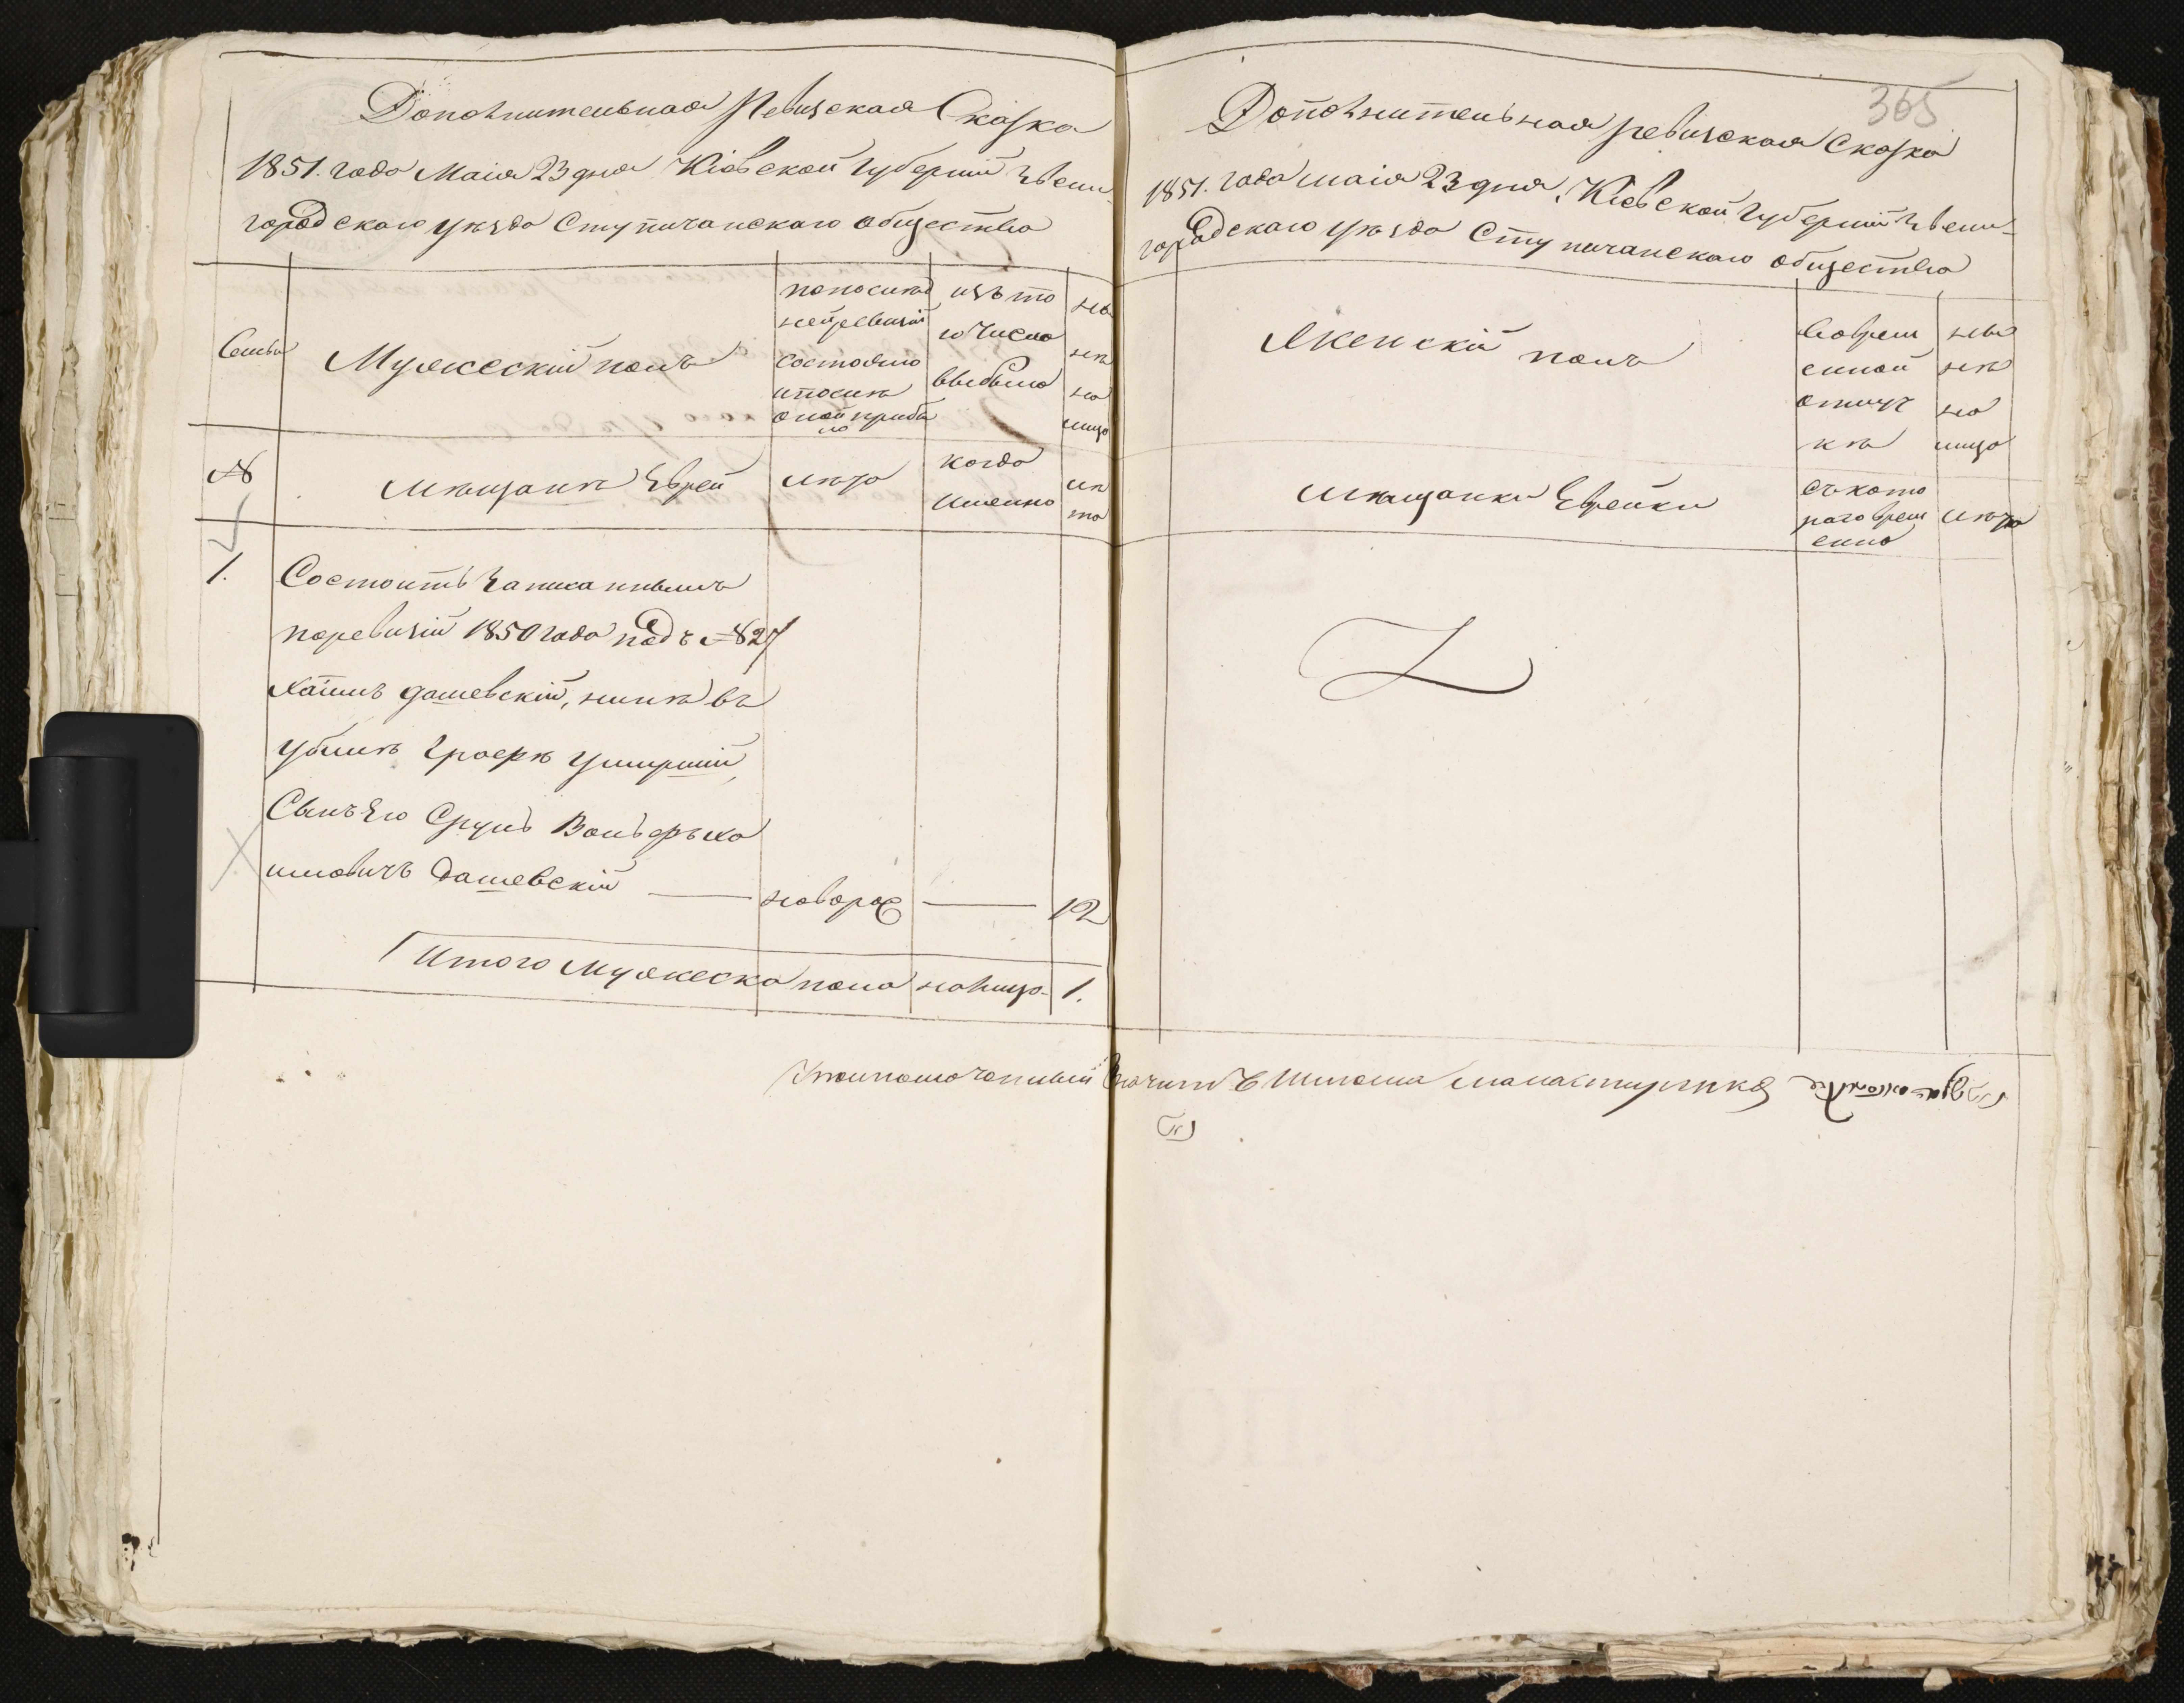 Дополнительная Ревизская Сказка
1851. года Маія 23 дня Кіевской губерніи Звени-
городскаго уѣзда Ступичанскаго общества
Семьи
Мужескій полъ
по послѣд
ней ревизіи
состояло
и послѣ
оной прибы
ло
изъ то
го числа
выбыло
ны
нѣ
на
лицо
№
Мѣщанъ Еврей
лѣта
когда
именно
лѣ
та
1.
Состоитъ записаннымъ
по ревизіи 1850 года подъ № 27
Хаимъ Дашевскій, нынѣ въ
умершій,
Сынъ Его Сруль Вольфъ Ха
имовичъ Дашевскій
новорож
12
Итого Мужеска пола на лицо
1.
365
Дополнительная ревизская Сказка
1851. года маія 23 дня, Кіевской губерніи Звени-
городскаго уѣзда Ступичанскаго общества
Женскій полъ
во врем
енной
отлуч
кѣ
ны
нѣ
на
лицо
Мѣщанки Еврейки
съ кото
раго врем
ени
лѣта